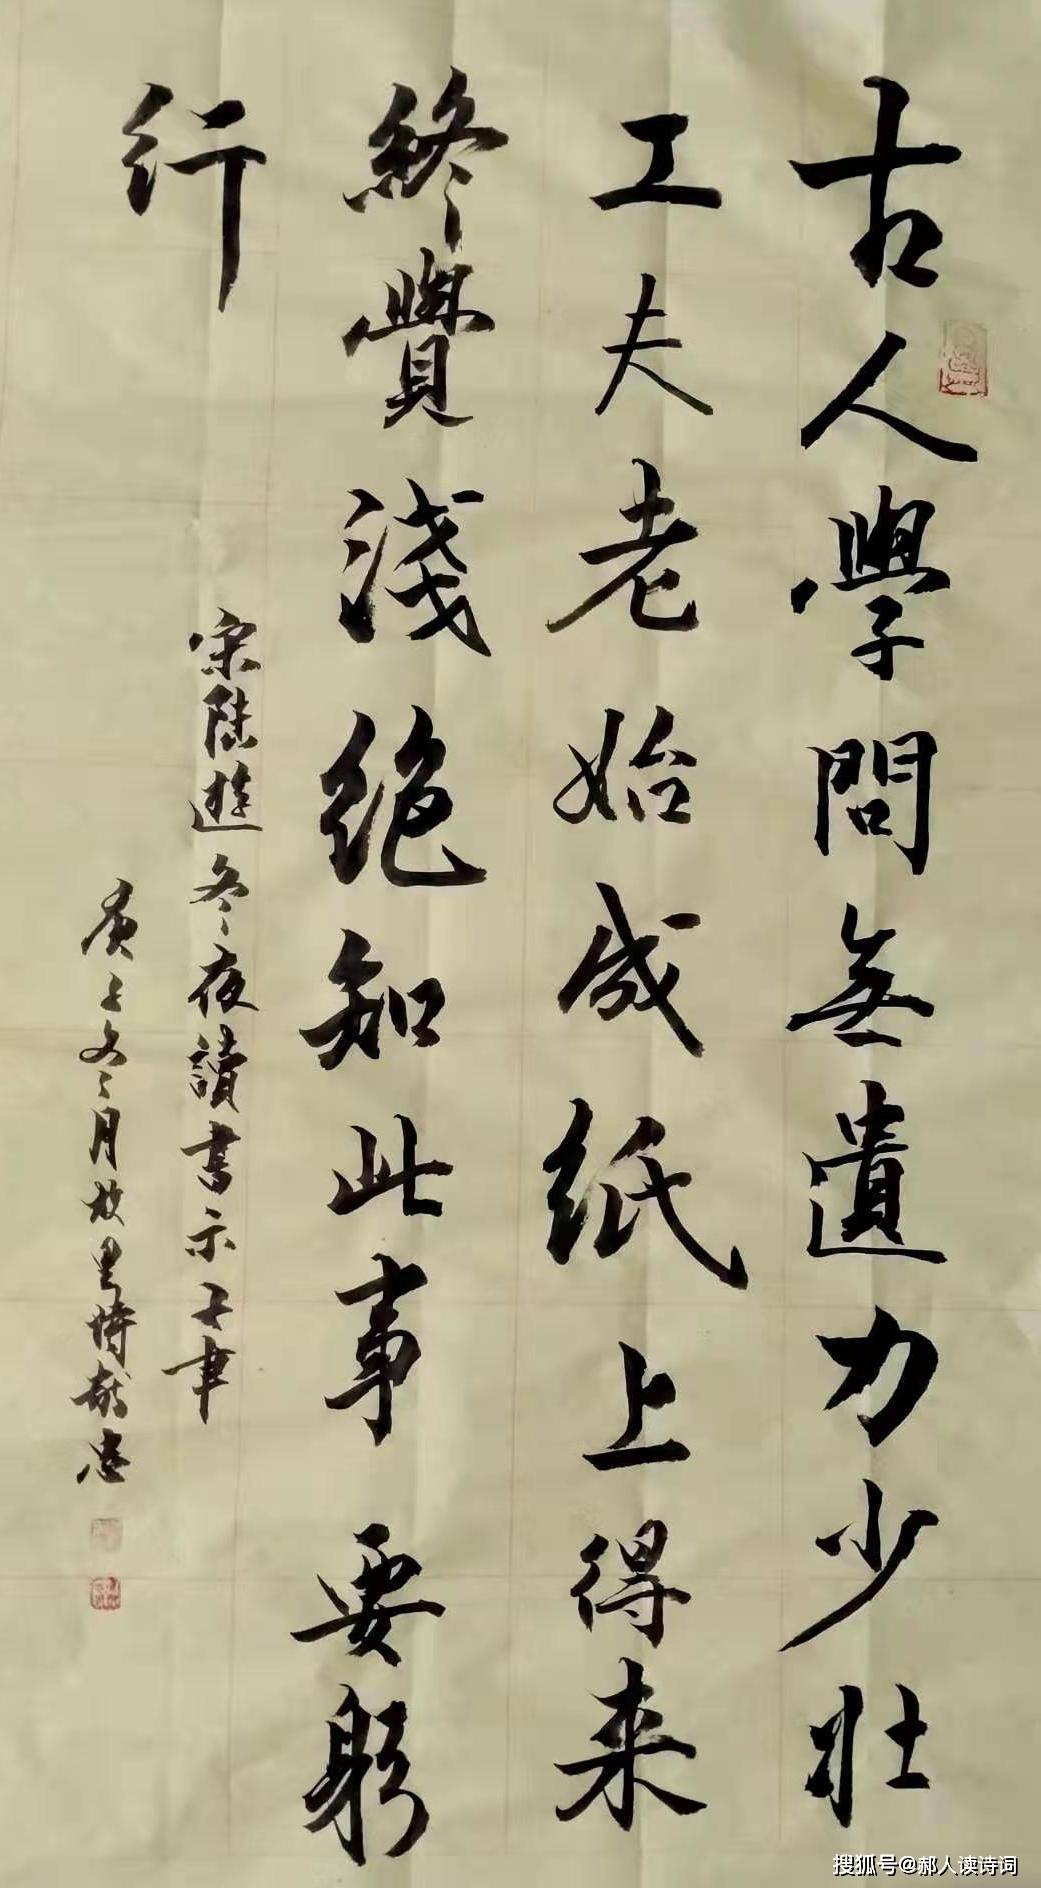 古人學問無遺力少壯
工夫老始成紙上得来
終覺淺絕知此事要躬
行
宋陸遊冬夜讀書示子聿
庚子冬月里時献忠
搜狐号@郝人读诗词